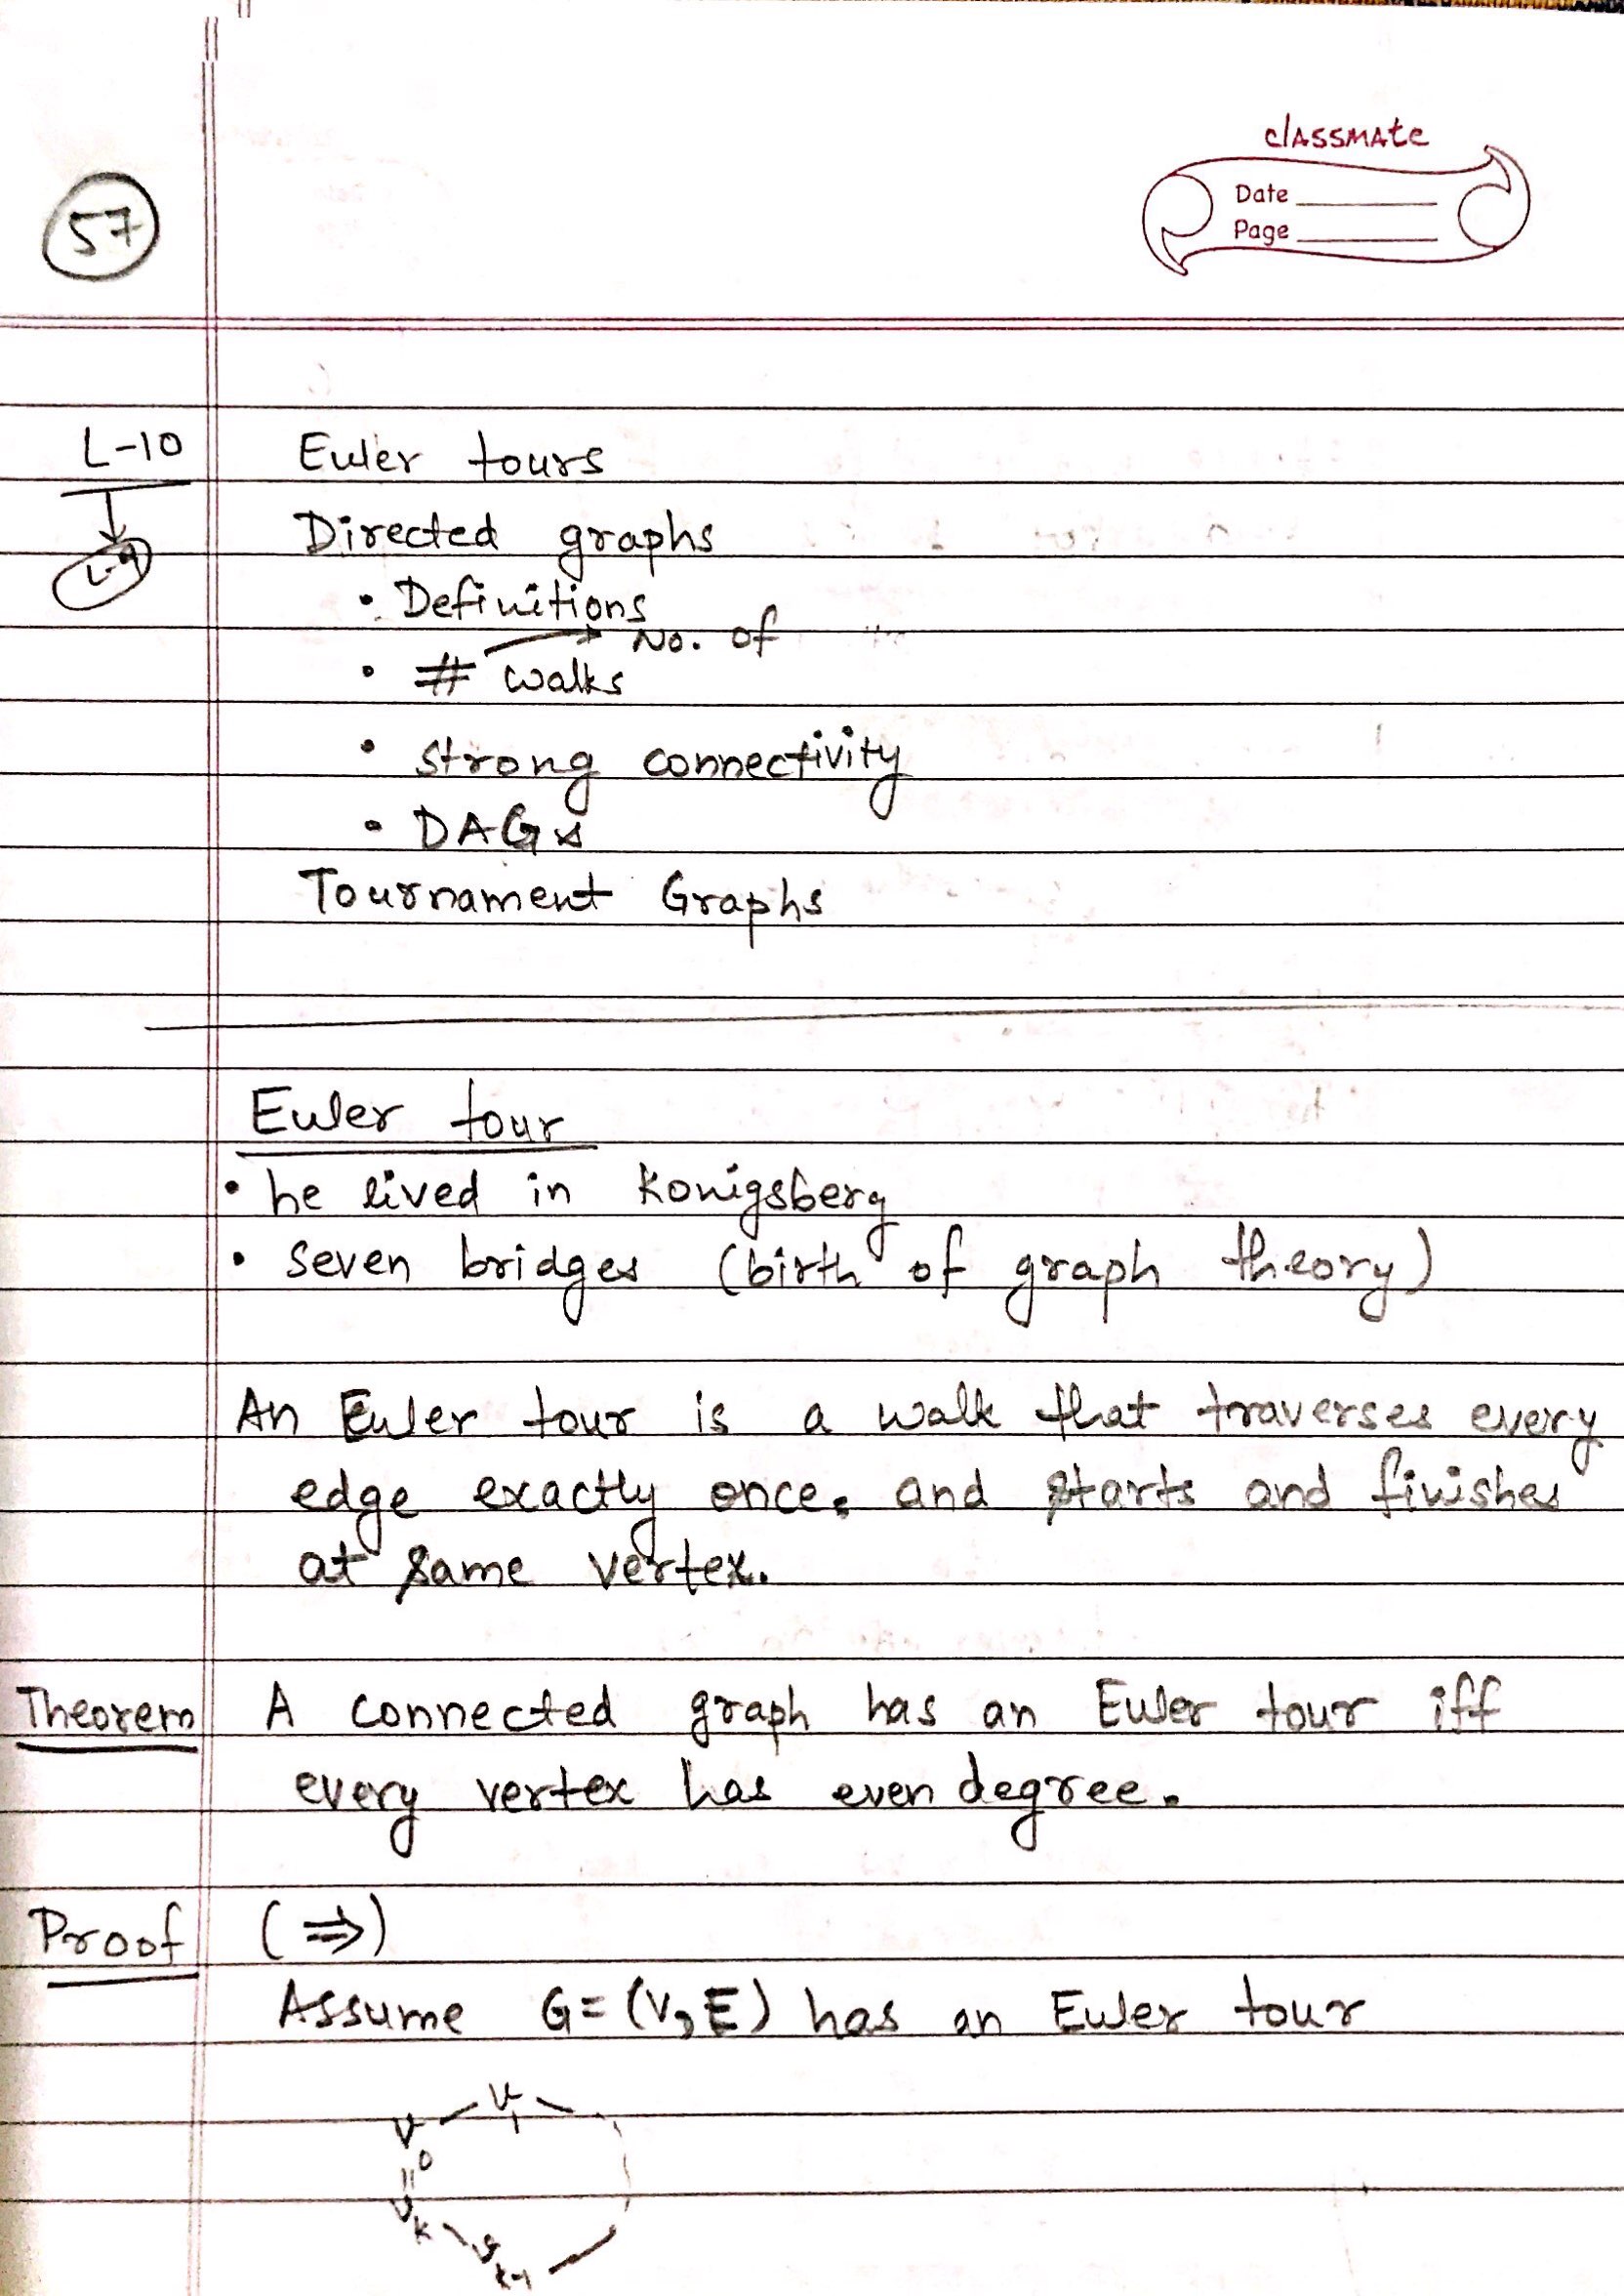 classmate
Date
Page
57
L-10
L-9
Euler tours
Directed graphs
• Definitions
No. of
• # walks
• strong connectivity
• DAGs
Tournament Graphs
Euler tour
• he lived in Konigsberg
• seven bridges (birth of graph theory)
An Euler tour is a walk that traverses every
edge exactly once. and starts and finishes
at same vertex.
Theorem A connected graph has an Euler tour iff
every vertex has even degree.
Proof (⇒)
Assume G=(V,E) has an Euler tour
v₀ — v₁ —
||
vₖ — vₖ₋₁ —